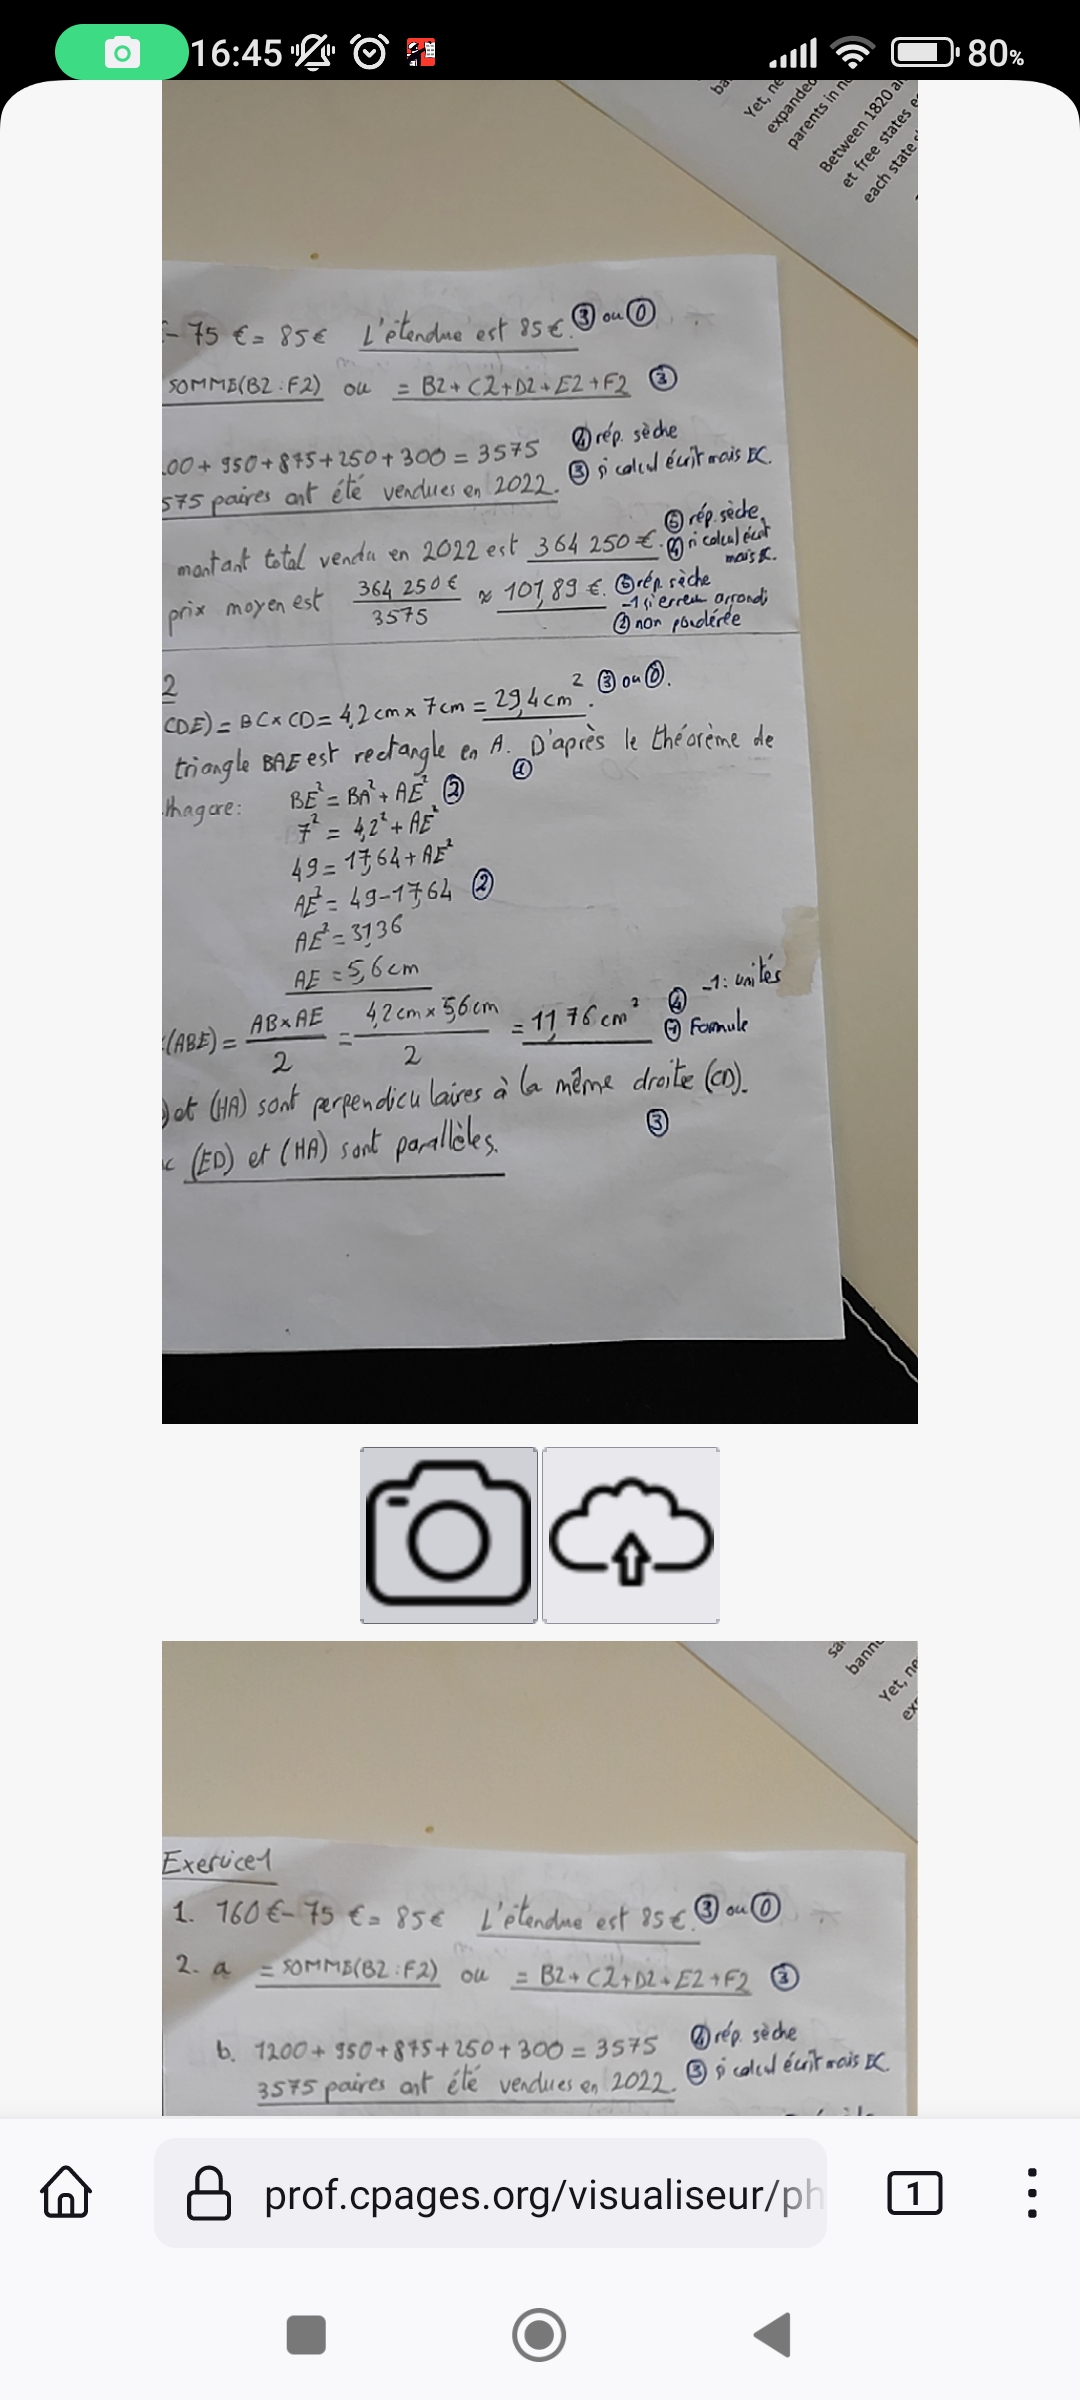 16:45
80%
ba
Yet, ne
expanded
parents in n
Between 1820 a
et free states e
each state
- 75 € = 85€ L'étendue est 85€. ③ ou ⓪
SOMME(B2:F2) ou = B2+C2+D2+E2+F2 ③
00+950+875+250+300 = 3575 ④ rép. sèche
575 paires ont été vendues en 2022. ③ si calcul écrit mais EC.
montant total vendu en 2022 est 364 250 €. ⑤ rép. sèche
④ si calcul écrit mais EC.
prix moyen est 364 250 € / 3575 ≈ 101,89 €. ⑤ rép. sèche
-1 si erreur arrondi
② non pondérée
2
CDE) = BC×CD = 4,2cm × 7cm = 29,4cm². ③ ou ⓪.
triangle BAE est rectangle en A. D'après le théorème de
①
thagore: BE² = BA² + AE² ②
7² = 4,2² + AE²
49 = 17,64 + AE²
AE² = 49-17,64 ②
AE² = 31,36
AE = 5,6cm
(ABE) = AB×AE / 2 = 4,2cm × 5,6cm / 2 = 11,76cm² ④ -1: unités
① Formule
) et (HA) sont perpendiculaires à la même droite (CD).
c (ED) et (HA) sont parallèles. ③
sa
bann
Yet, ne
ex
Exercice1
1. 160€-75 € = 85€ L'étendue est 85€. ③ ou ⓪
2. a = SOMME(B2:F2) ou = B2+C2+D2+E2+F2 ③
b. 1200+950+875+250+300 = 3575 ④ rép. sèche
3575 paires ont été vendues en 2022. ③ si calcul écrit mais EC.
prof.cpages.org/visualiseur/ph
1